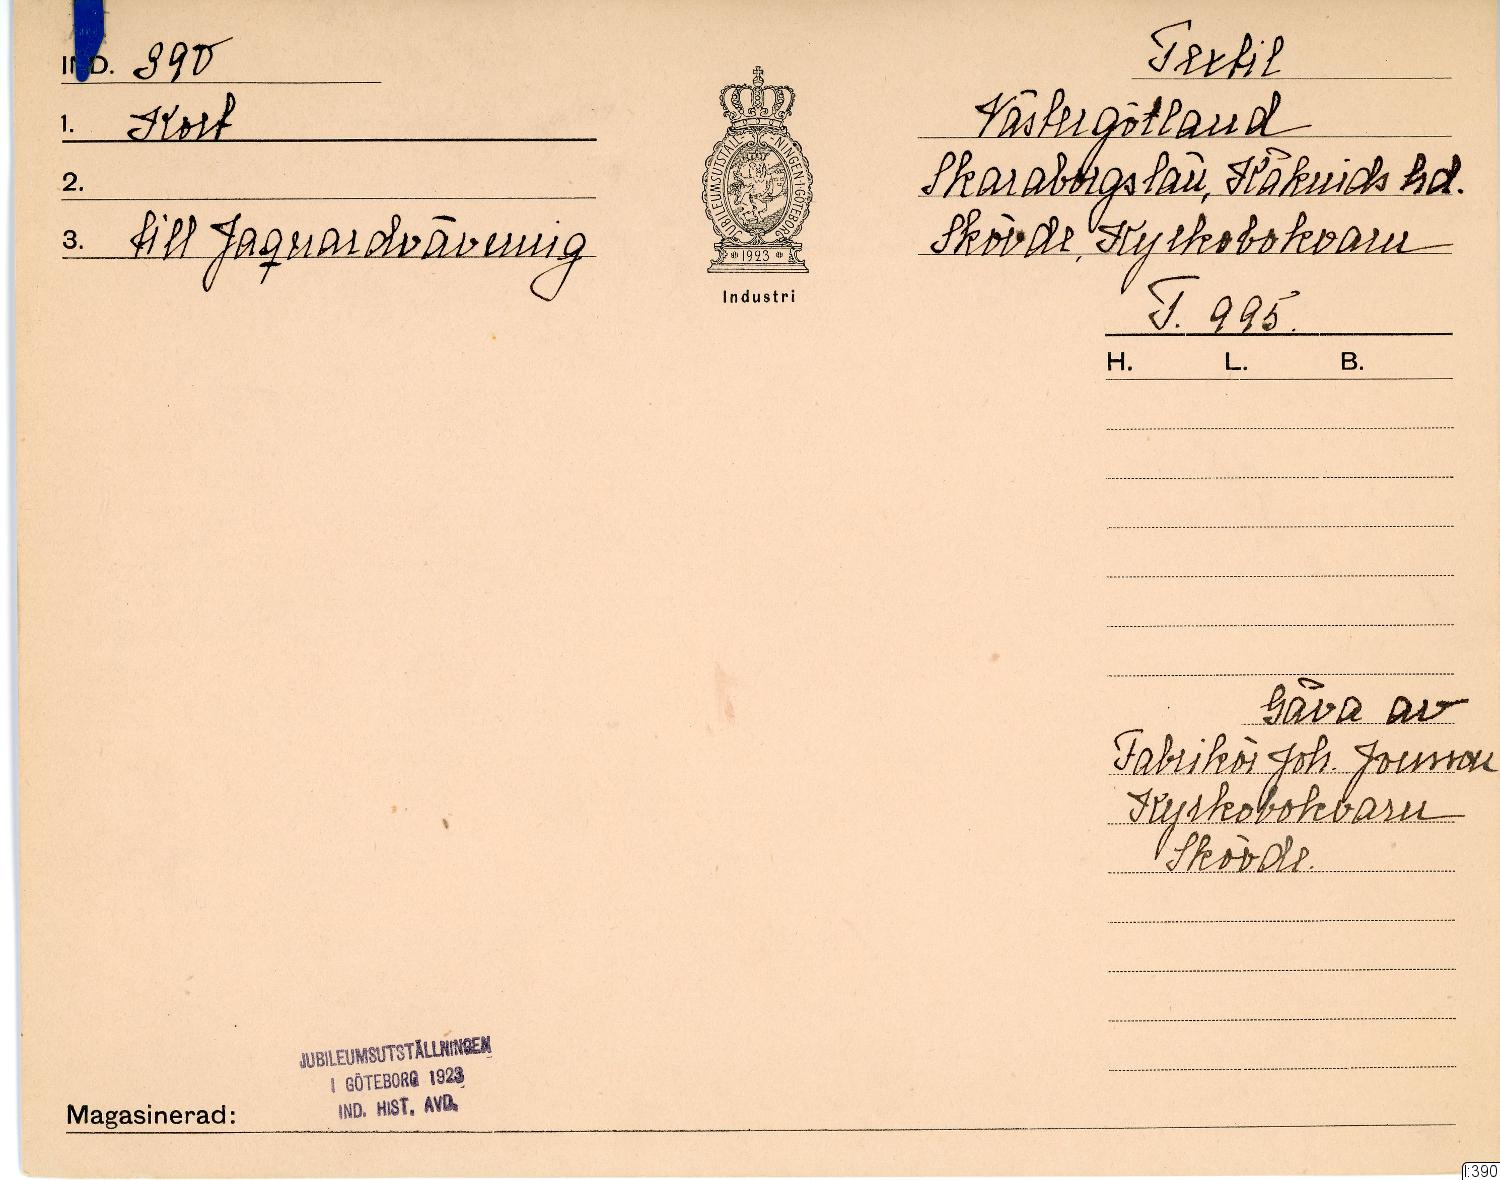 IND. 390
1. Kort
2.
3. till Jaquardvävning
JUBILEUMSUTSTÄLL-NINGEN I GÖTEBORG
1923
Industri
Textil
Västergötland
Skaraborgs län, Kåkinds hd.
Skövde, Kyrkobokvarn
T. 995.
H. L. B.
Gåva av
Fabrikör Joh. Jonsson
Kyrkobokvarn
Skövde.
JUBILEUMSUTSTÄLLNINGEN
I GÖTEBORG 1923
IND. HIST. AVD.
Magasinerad:
I:390